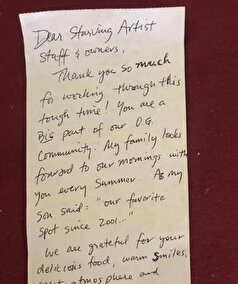 Dear Starving Artist
Staff & owners,
Thank you so much
for working through this
tough time! You are a
BIG part of our O.G.
Community. My family looks
forward to our mornings with
you every Summer. As my
Son said: "our favorite
Spot since 2001..."
We are grateful for your
delicious food, warm smiles,
atmosphere and